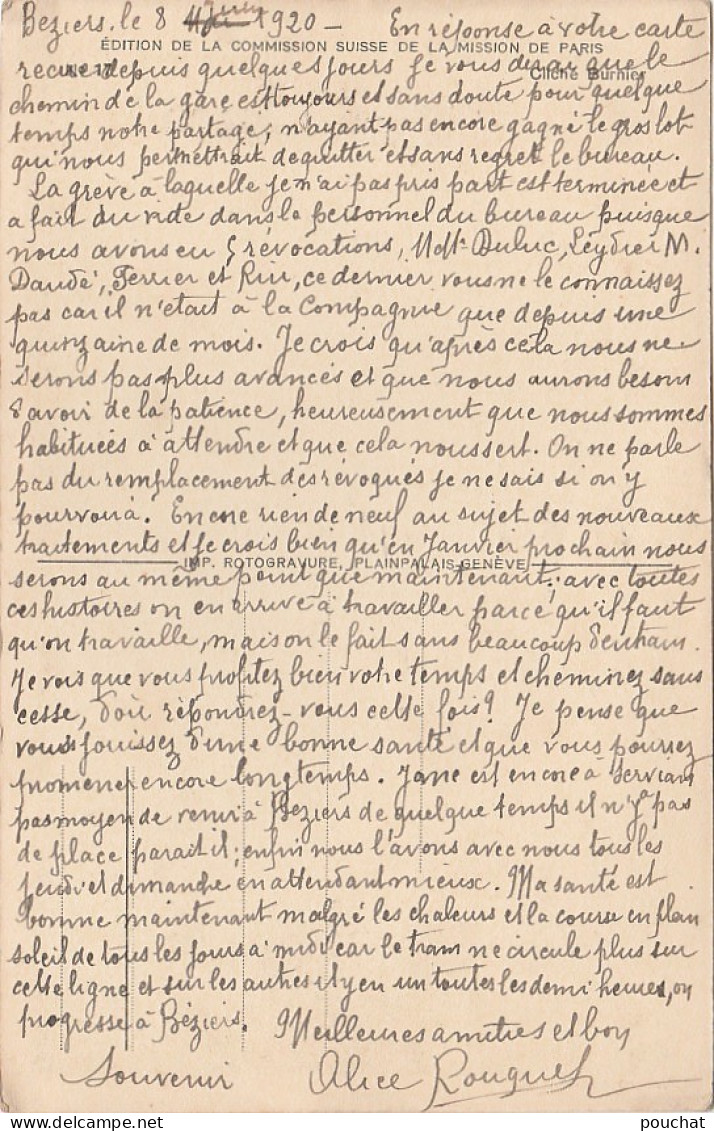 Beziers, le 8 Juin 1920 - En réponse à votre carte
ÉDITION DE LA COMMISSION SUISSE DE LA MISSION DE PARIS
reçue depuis quelques jours je vous dirai que le
Cliché Burnier
chemin de la gare est toujours et sans doute pour quelque
temps notre partage, n'ayant pas encore gagné le gros lot
qui nous permettrait de quitter et sans regret le bureau.
La grève à laquelle je n'ai pas pris part est terminée et
a fait du vide dans le personnel du bureau puisque
nous avons eu 5 révocations, Mdlle Duluc, Leydier M.
Daudé, Ferrier et Riu, ce dernier vous ne le connaissez
pas car il n'était à la Compagnie que depuis une
quinzaine de mois. Je crois qu'après cela nous ne
serons pas plus avancés et que nous aurons besoin
d'avoir de la patience, heureusement que nous sommes
habituées à attendre et que cela nous sert. On ne parle
pas du remplacement des révoqués je ne sais si on y
pourvoira. Encore rien de neuf au sujet des nouveaux
traitements et je crois bien qu'en Janvier prochain nous
IMP. ROTOGRAVURE, PLAINPALAIS-GENÈVE
serons au même point que maintenant; avec toutes
ces histoires on en arrive à travailler parce qu'il faut
qu'on travaille, mais on le fait sans beaucoup d'entrain.
Je vois que vous profitez bien votre temps et cheminez sans
cesse, d'où répondrez-vous cette fois? Je pense que
vous jouissez d'une bonne santé et que vous pourrez
promener encore longtemps. Jane est encore à Servian
pas moyen de venir à Béziers de quelque temps il n'y a pas
de place parait il; enfin nous l'avons avec nous tous les
jeudi et dimanche en attendant mieux. Ma santé est
bonne maintenant malgré les chaleurs et la course en plein
soleil de tous les jours à midi car le tram ne circule plus sur
cette ligne et sur les autres il y en un toutes les demi heures, on
progresse à Béziers. Meilleures amitiés et bon
Souvenir Alice Rouquet
pouchat